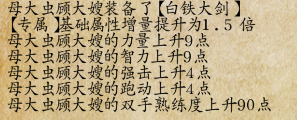 母大虫顾大嫂装备了【白铁大剑】
【专属】基础属性增量提升为1.5 倍
母大虫顾大嫂的力量上升9点
母大虫顾大嫂的智力上升9点
母大虫顾大嫂的强击上升4点
母大虫顾大嫂的跑动上升4点
母大虫顾大嫂的双手熟练度上升90点